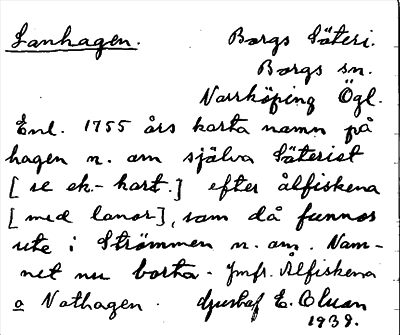 Lanhagen. Borgs Säteri.
Borgs sn.
Norrköping Ögl.
Enl. 1755 års karta namn på
hagen n. om själva Säteriet
[se ek.-kart.] efter ålfiskena
[med lanor], som då funnos
ute i Strömmen n. om. Nam-
net nu borta. Jmfr. Ålfiskena
o Nothagen. Gustaf E. Olsson
1939.